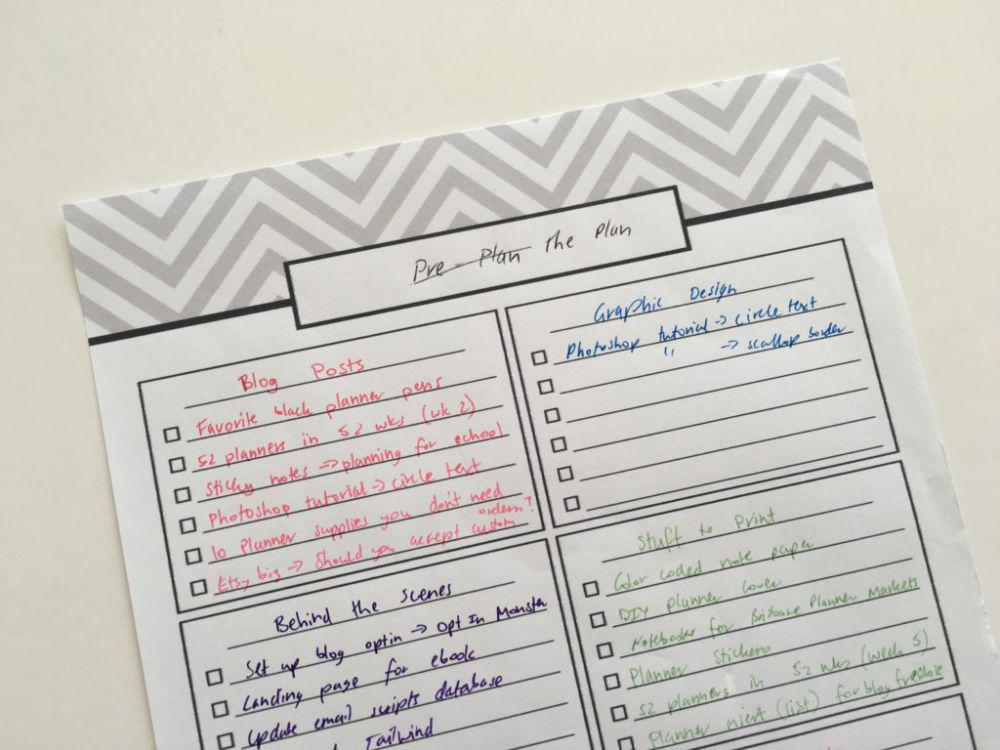 Pre-Plan The Plan
Blog Posts
Favorite black planner pens
52 planners in 52 wks (wk 2)
Sticky notes → planning for school
Photoshop tutorial → circle text
10 Planner supplies you don't need
Etsy biz → Should you accept custom orders?
Behind the Scenes
Set up blog optin → Opt In Monster
Landing page for ebook
Update email scripts database
Tailwind
Graphic Design
Photoshop tutorial → circle text
" → scallop border
Stuff to Print
Color coded note paper
DIY Planner Cover
Notebooks for Brisbane Planner Markets
Planner Stickers
52 planners in 52 wks (week 5)
Planner (list) for blog freebie